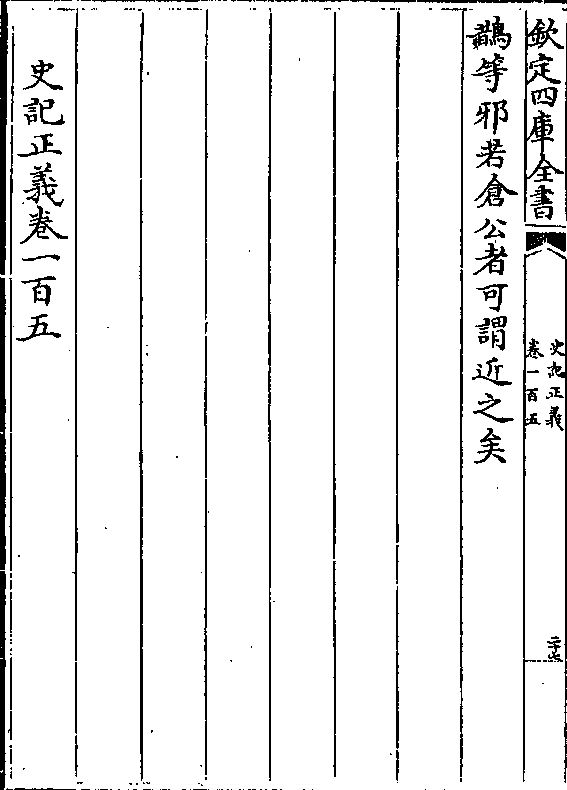 欽定四庫全書
史記正義
卷一百五
二十七
鵲等邪若倉公者可謂近之矣
史記正義卷一百五